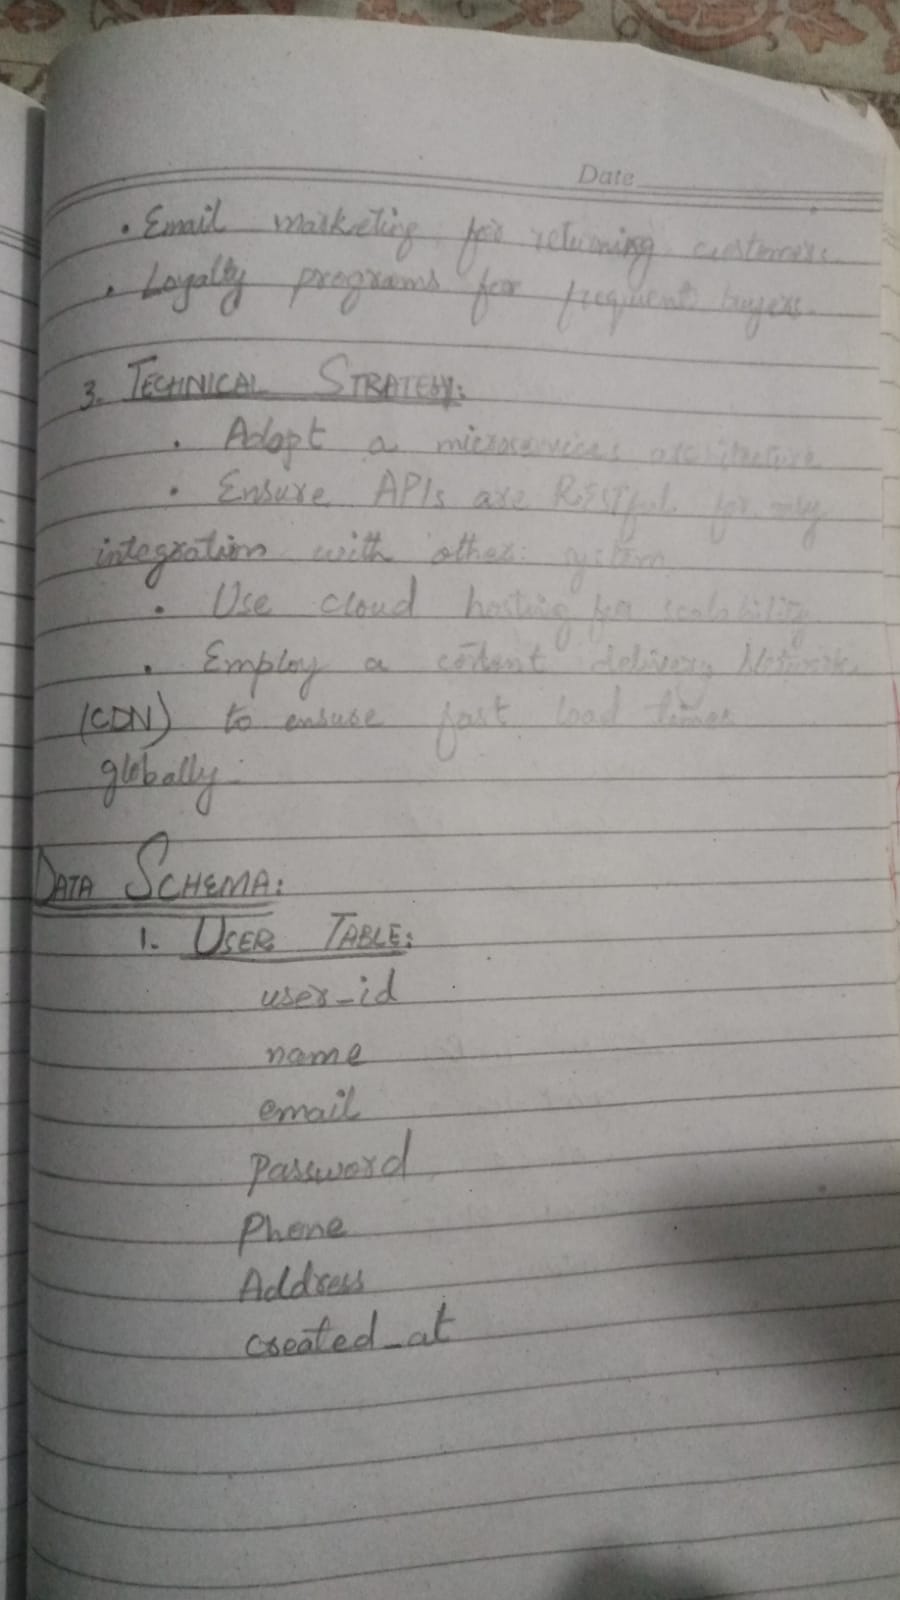 Date
• Email marketing for returning customers.
• Loyalty programs for frequent buyers.
3. TECHNICAL STRATEGY:
• Adopt a microservices architecture
• Ensure APIs are RESTful for easy
integration with other system
• Use cloud hosting for scalability
• Employ a content delivery Network
(CDN) to ensure fast load times
globally.
DATA SCHEMA:
1. USER TABLE:
user_id
name
email
Password
Phone
Address
created_at